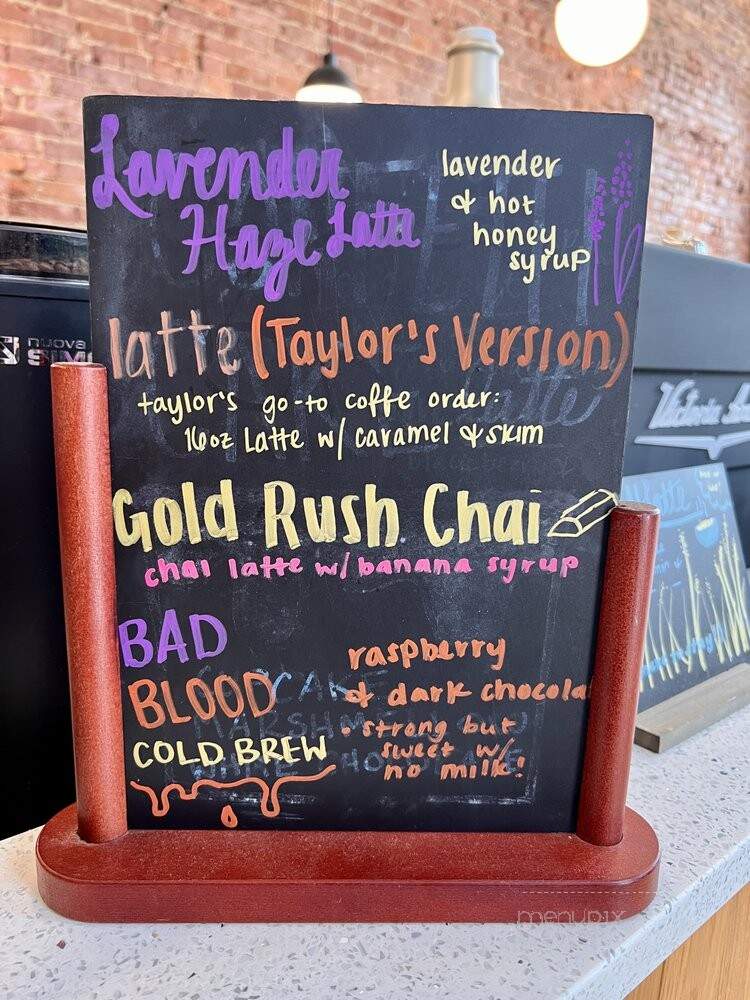 Lavender
Haze Latte
lavender
& hot
honey
syrup
latte (Taylor's Version)
taylor's go-to coffe order:
16oz Latte w/ caramel & skim
Gold Rush Chai
chai latte w/ banana syrup
BAD
BLOOD
COLD BREW
raspberry
& dark chocola
strong but
sweet w/
no milk!
nuova
menupix